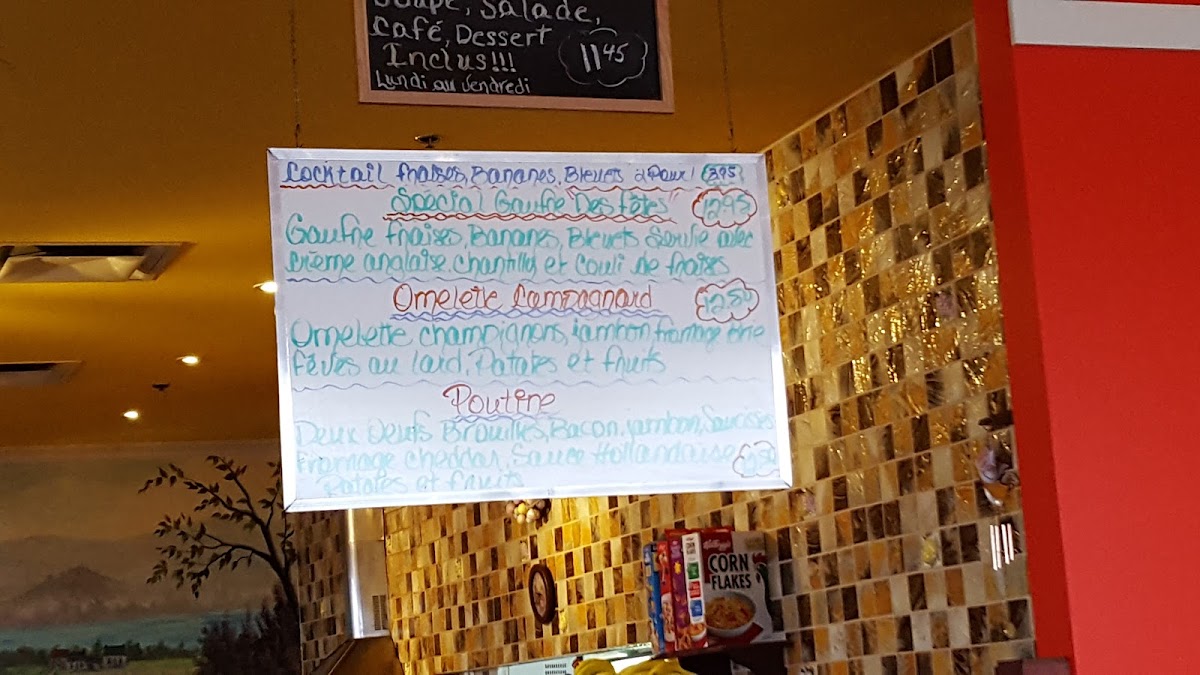 Soupe, Salade,
Café, Dessert
Inclus!!! 11 45
Lundi au Vendredi
Cocktail fraises, Bananes, Bleuets 3.95
Spécial Gaufre "Des fêtes" 12.95
Gaufre fraises, Bananes, Bleuets Servie avec
Crème anglaise. chantilly et Couli de fraises
Omelette Campagnard
Omelette champignons, jambon fromage Brie
fèves au lard, Patates et fruits
Poutine
Deux Oeufs Brouillés, Bacon, jambon, Saucisses
fromage cheddar, Sauce Hollandaise
Patates et fruits
Kellogg's
CORN
FLAKES